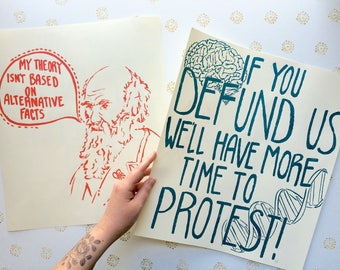 MY THEORY
ISN'T BASED
ON
ALTERNATIVE
FACTS
IF YOU
DEFUND US
WE'LL HAVE MORE
TIME TO
PROTEST!